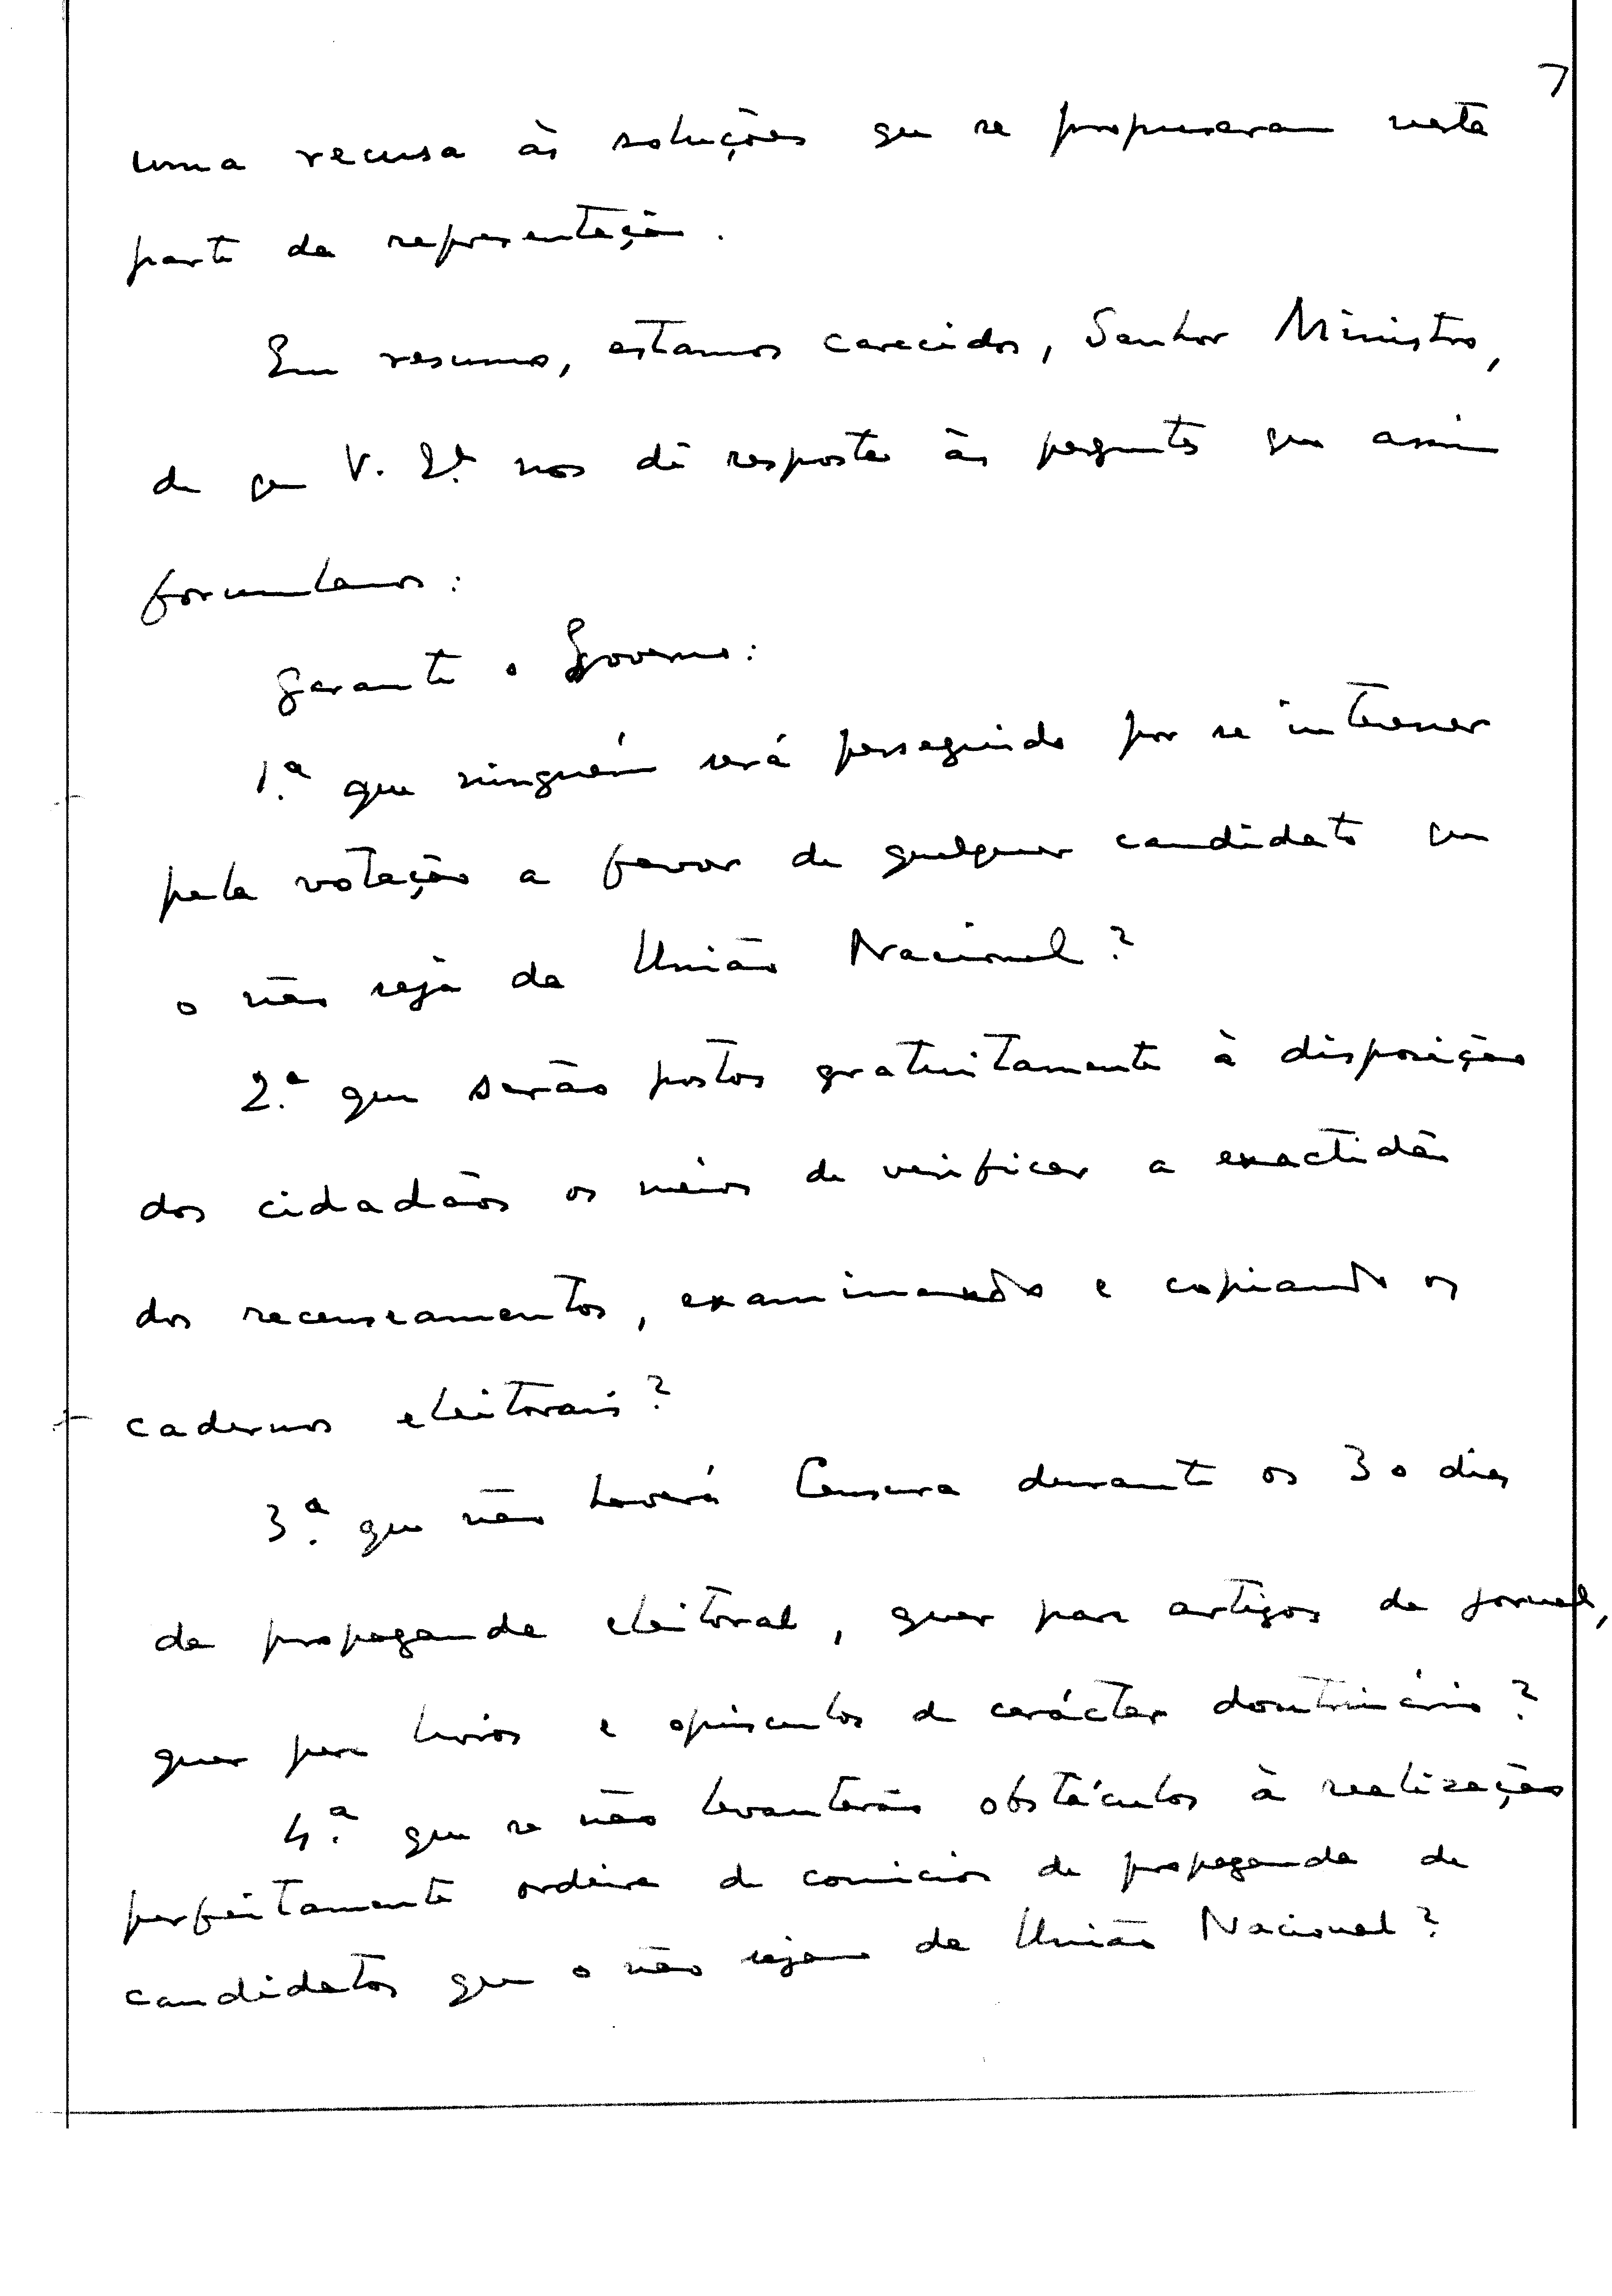 7
uma recusa às soluções que se propuseram nesta
parte da representação.
Em resumo, estamos carecidos, Senhor Ministro,
de que V. Ex.ª nos dê resposta às perguntas que assim
formulamos:
Garante o Governo:
1.ª que ninguém será perseguido por se interessar
pela votação a favor de qualquer candidato que
o não seja da União Nacional?
2.ª que serão postos gratuitamente à disposição
dos cidadãos os meios de verificar a exactidão
dos recenseamentos, examinando e copiando os
cadernos eleitorais?
3.ª que não haverá Censura durante os 30 dias
da propaganda eleitoral, quer para artigos de jornal,
quer para livros e opúsculos de carácter doutrinário?
4.ª que se não levantarão obstáculos à realização
perfeitamente ordeira de comícios de propaganda de
candidatos que o não sejam da União Nacional?